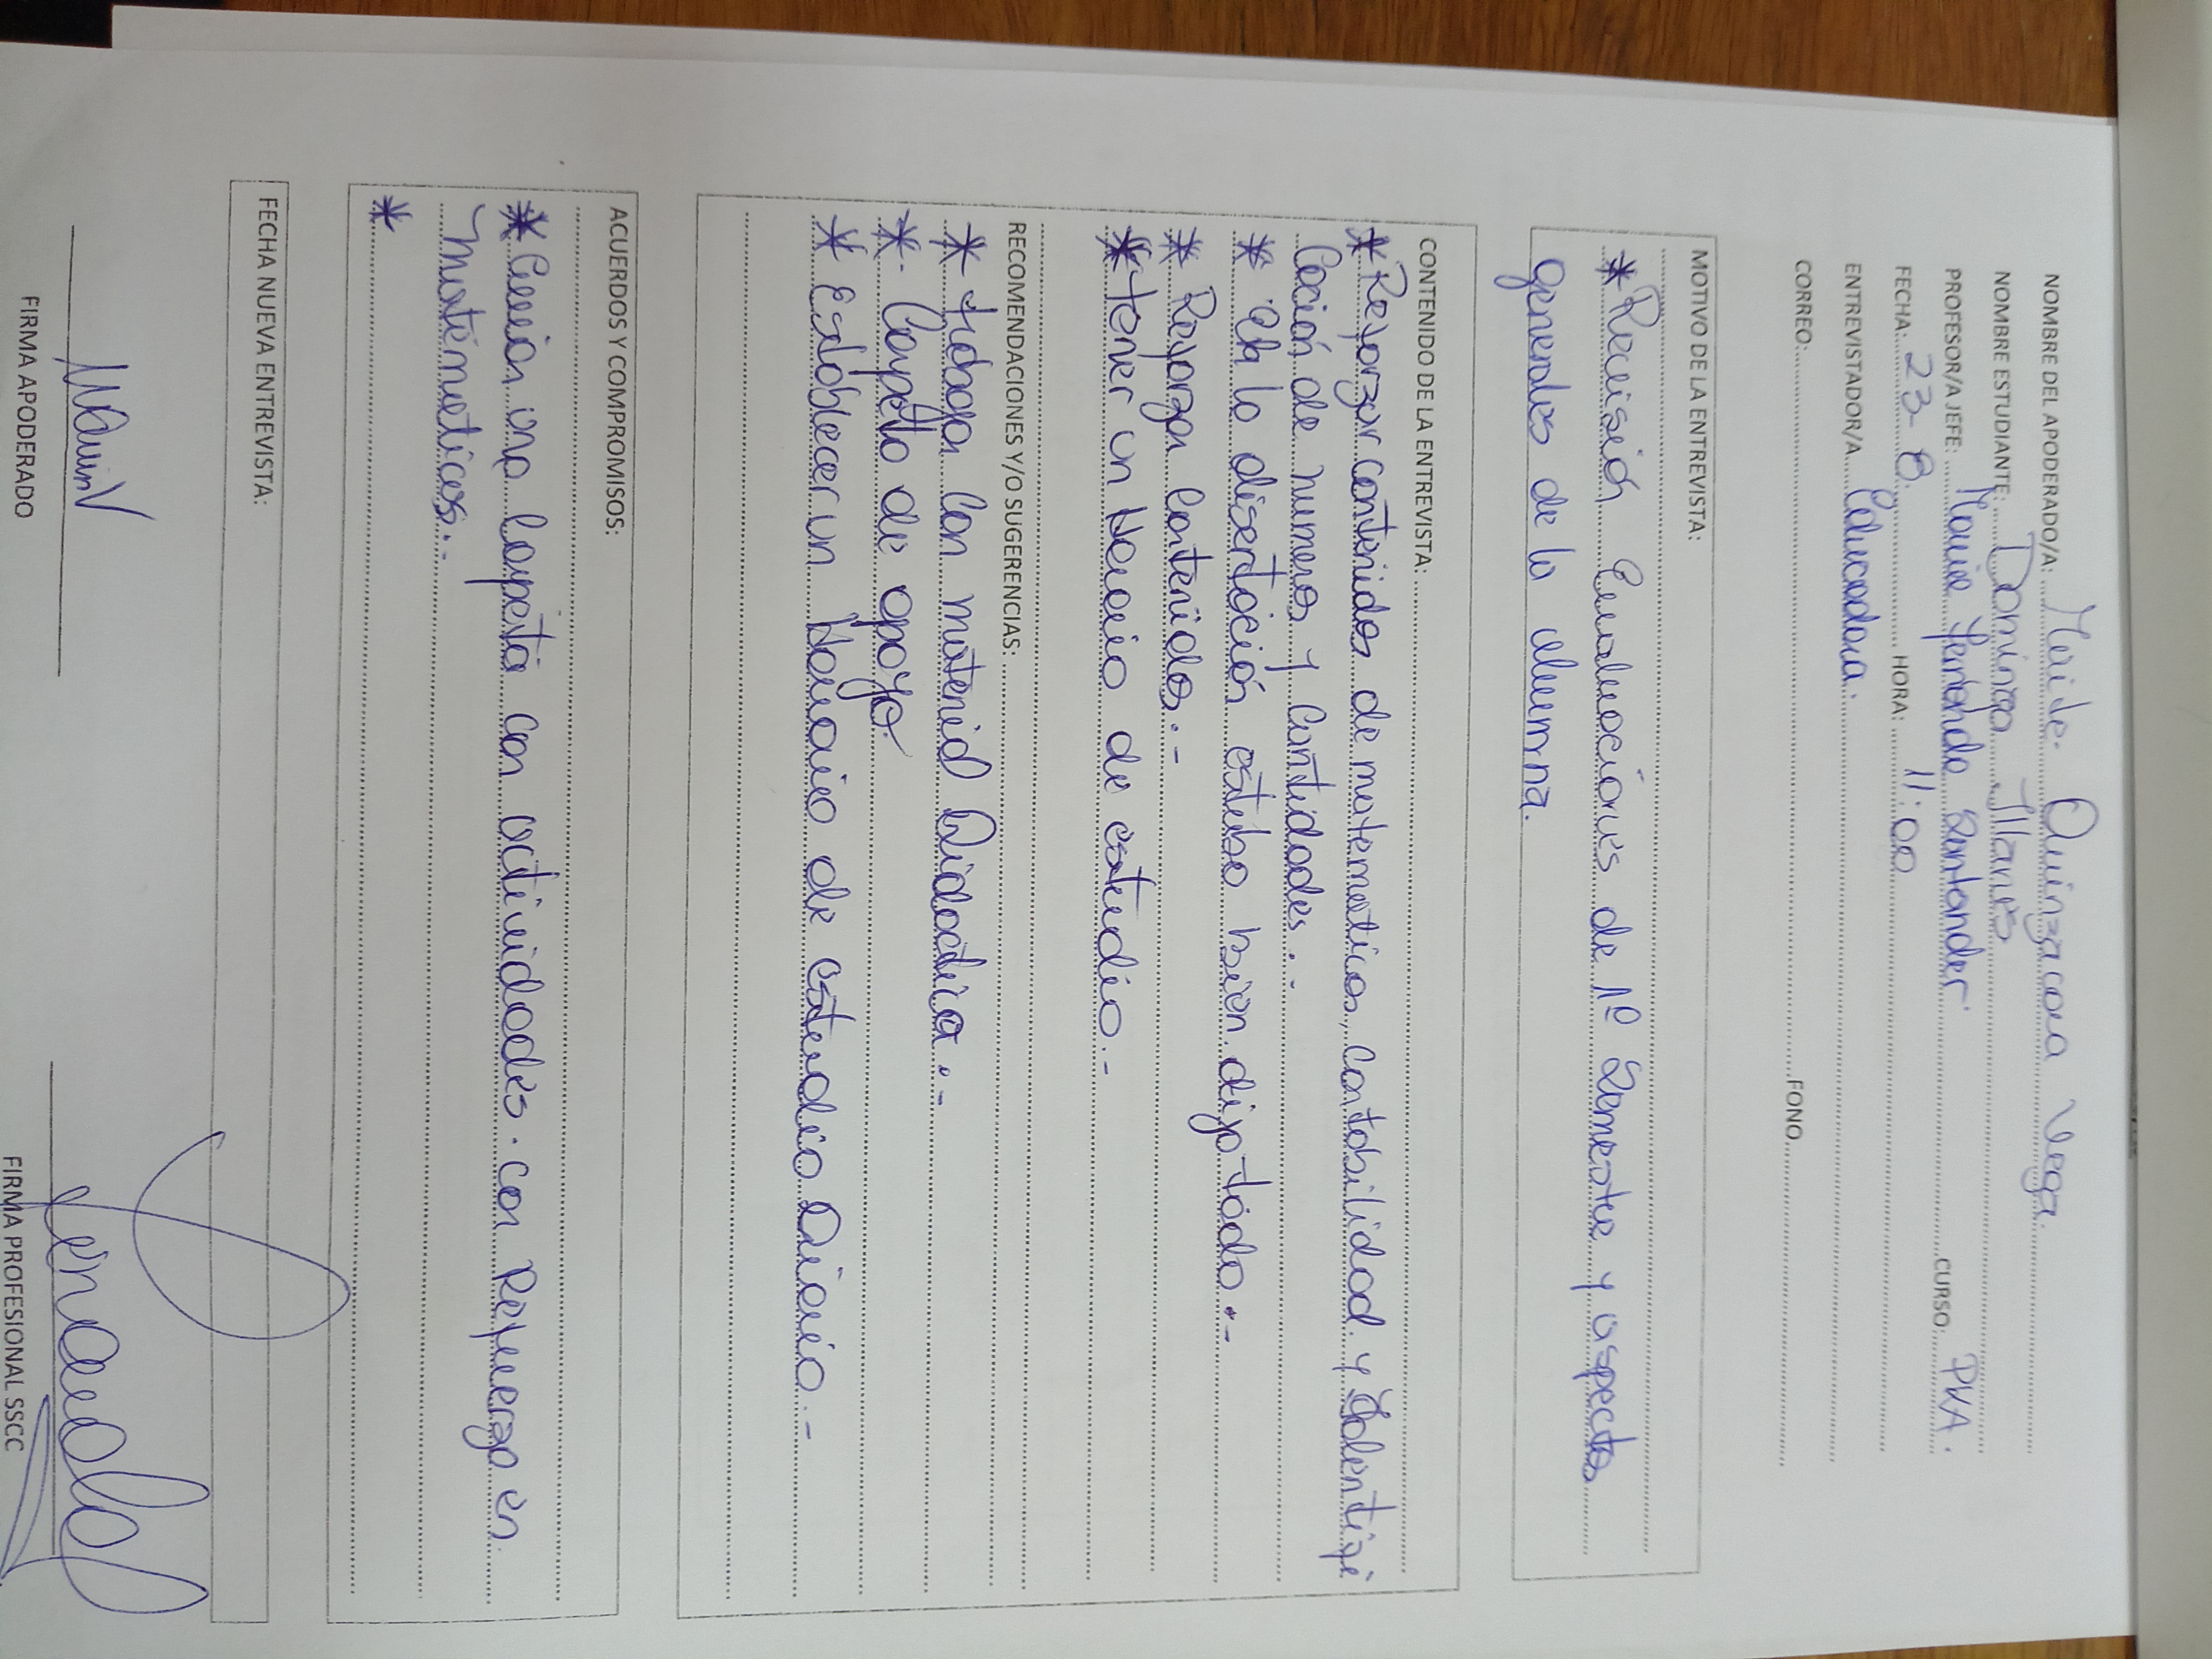 NOMBRE DEL APODERADO/A: Quinzacara Vega.
NOMBRE ESTUDIANTE: Dominga Illanes
PROFESOR/A JEFE: María Fernanda Santander CURSO: PKA.
FECHA: 23-8. HORA: 11:00
ENTREVISTADOR/A Educadora.
CORREO: FONO.
MOTIVO DE LA ENTREVISTA:
* Revisión Evaluaciones de 1º Semestre y aspectos
generales de la alumna.
CONTENIDO DE LA ENTREVISTA:
* Reforzar contenidos de matematicas, contabilidad y Identifi
cación de numeros y Cantidades.-
* En la disertación estubo bien dijo todo.-
* Reforzar Contenidos.-
* tener un Horario de estudio.-
RECOMENDACIONES Y/O SUGERENCIAS:
* trabajar con material Didactica.-
* Carpeta de apoyo.
* Establecer un Horario de estudio Diario.-
ACUERDOS Y COMPROMISOS:
* Envian una Carpeta con actividades. con Refuerzo en
matematicas.-
*
FECHA NUEVA ENTREVISTA:
FIRMA APODERADO FIRMA PROFESIONAL SSCC